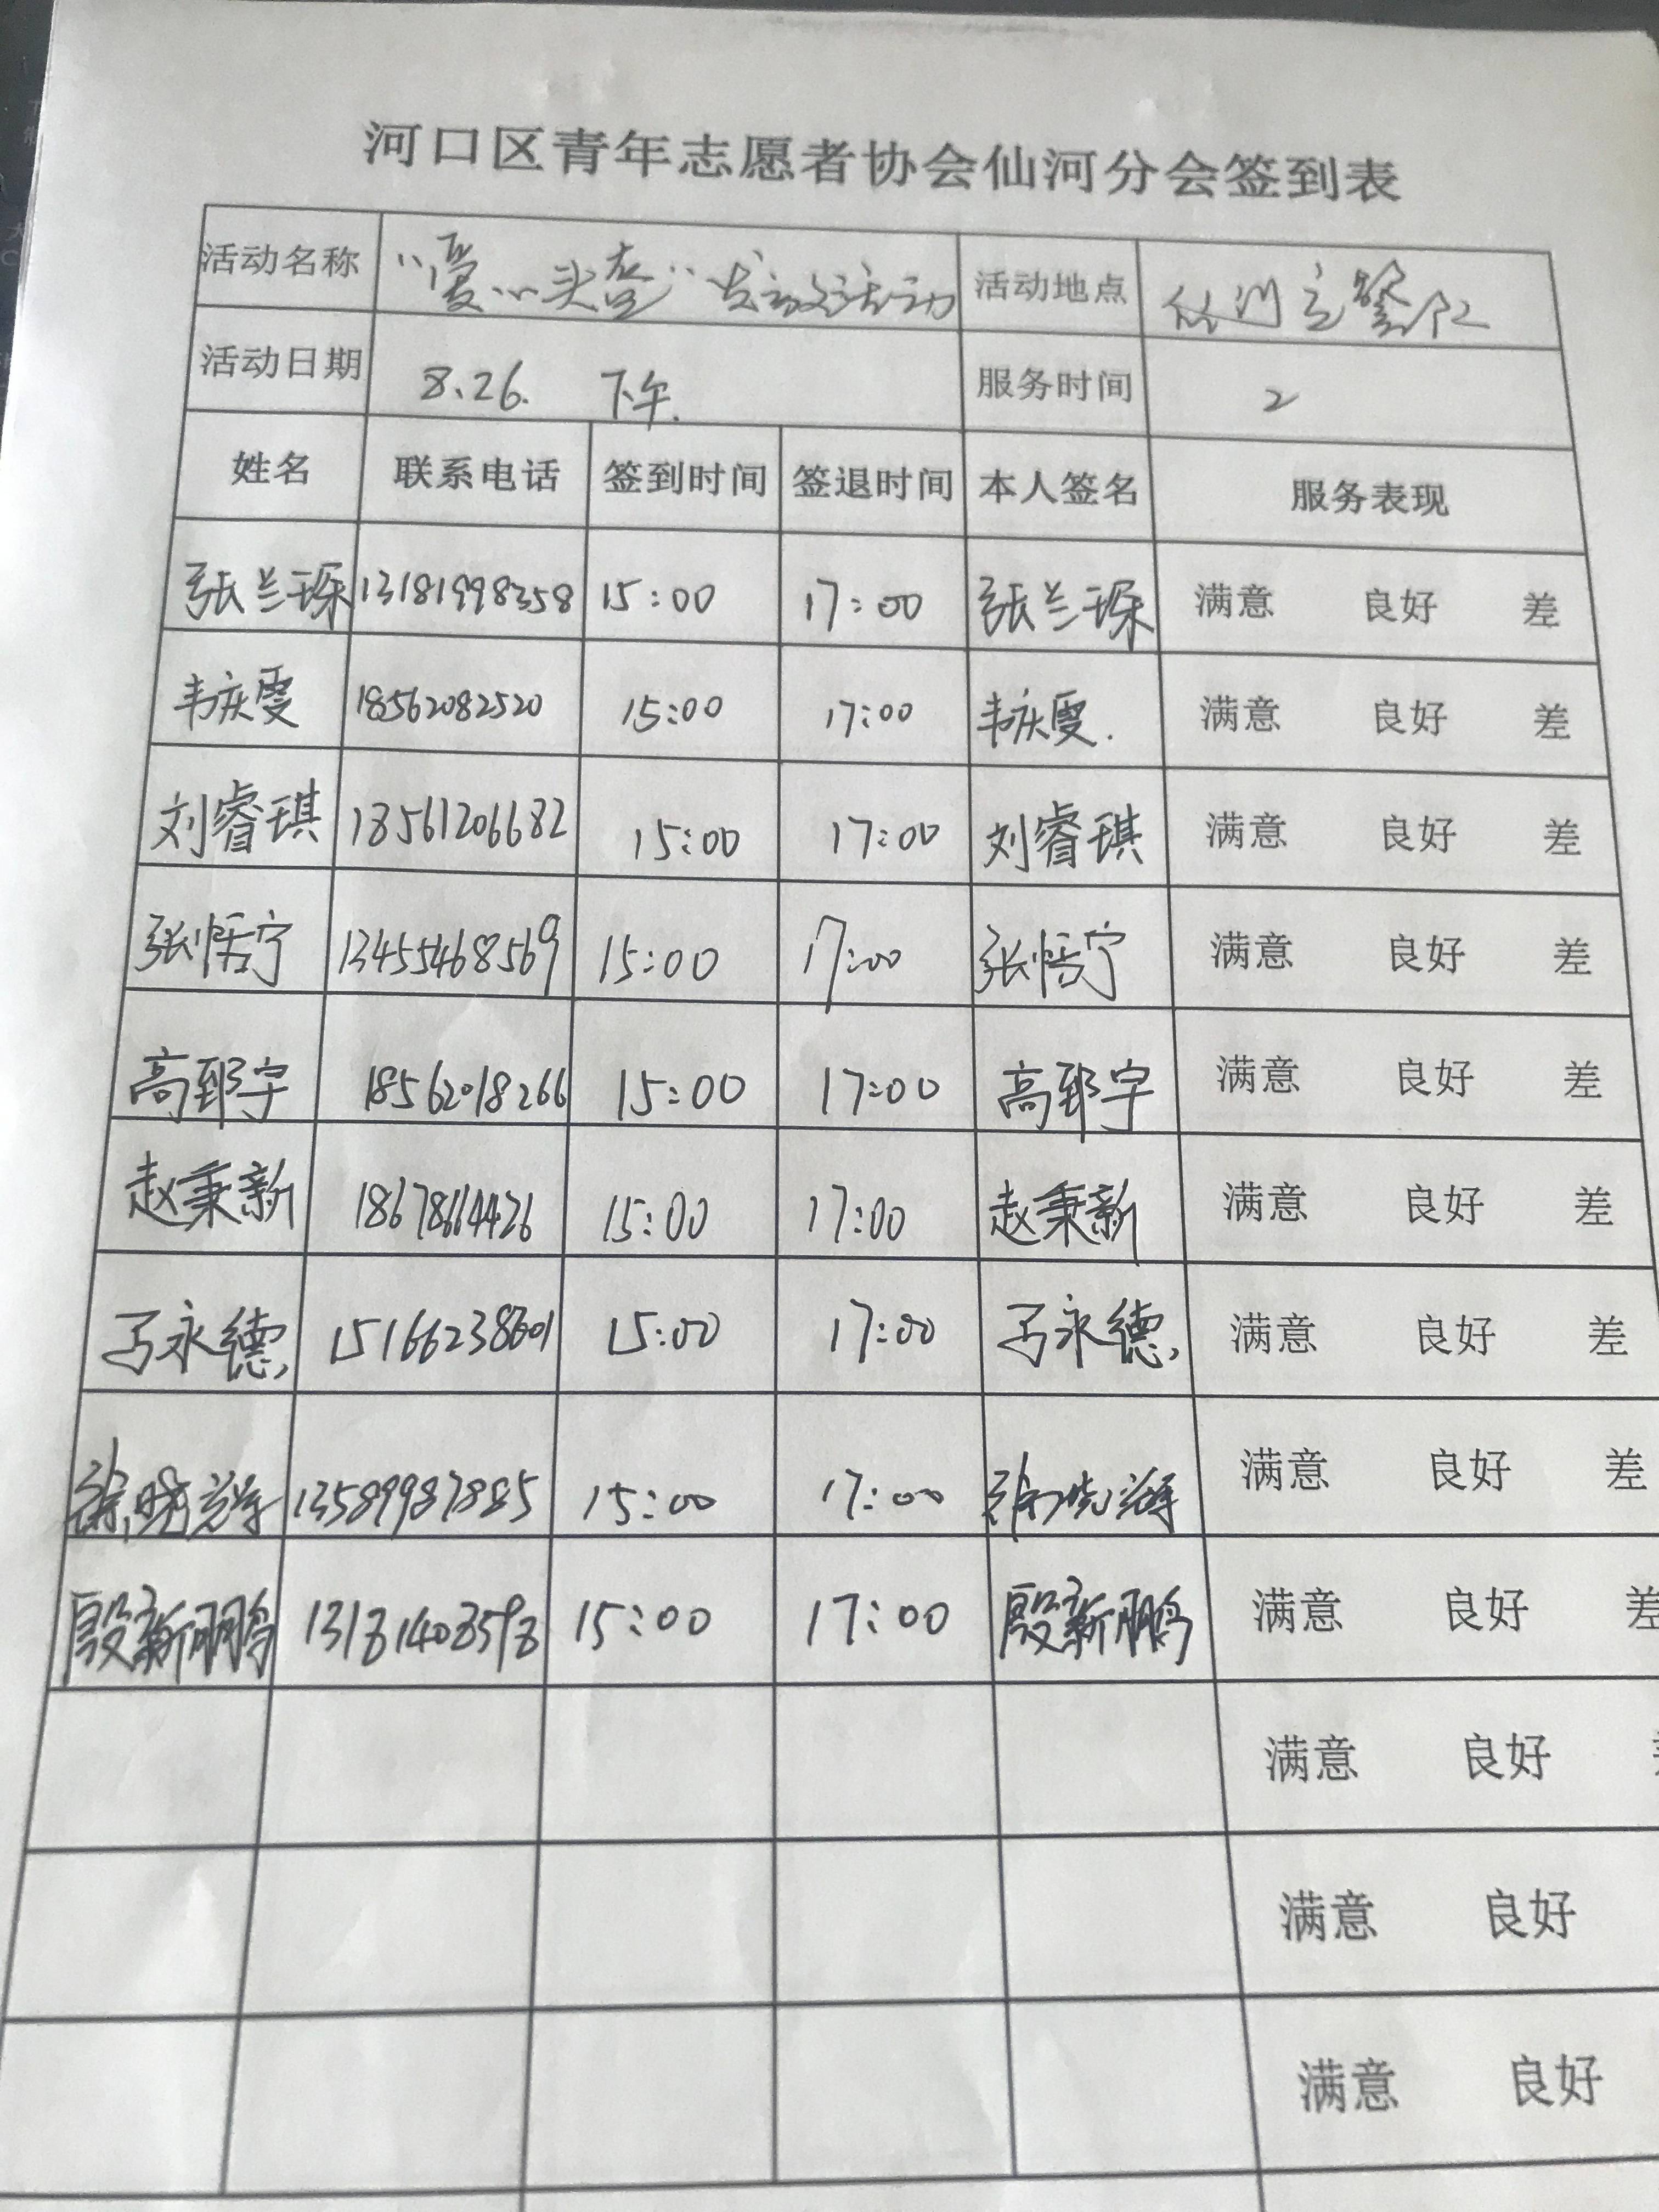 河口区青年志愿者协会仙河分会签到表
活动名称 "爱心头盔"发放活动 活动地点 仙河交警队
活动日期 8.26. 下午. 服务时间 2
姓名 联系电话 签到时间 签退时间 本人签名 服务表现
张兰琛 13181998358 15:00 17:00 张兰琛 满意 良好 差
韦庆雯 18562082520 15:00 17:00 韦庆雯. 满意 良好 差
刘睿琪 18561206682 15:00 17:00 刘睿琪 满意 良好 差
张恬宁 13455468569 15:00 17:00 张恬宁 满意 良好 差
高郅宇 18562018266 15:00 17:00 高郅宇 满意 良好 差
赵秉新 18678664426 15:00 17:00 赵秉新 满意 良好 差
永德 15166238601 15:00 17:00 永德 满意 良好 差
徐晓辉 13589987885 15:00 17:00 徐晓辉 满意 良好 差
殷新鹏 13181408598 15:00 17:00 殷新鹏 满意 良好 差
满意 良好
满意 良好
满意 良好